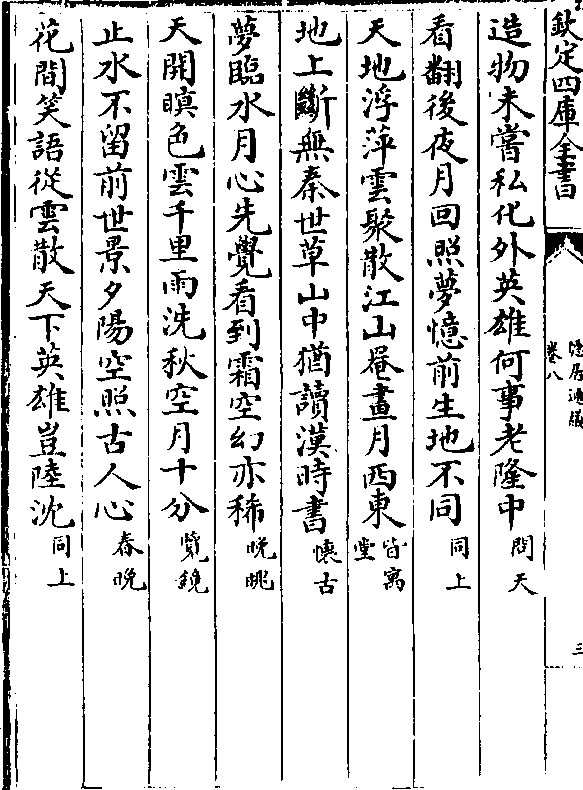 欽定四庫全書
隱居通議
卷八
三
造物未嘗私化外英雄何事老隆中問天
看翻後夜月回照夢憶前生地不同同上
天地浮萍雲聚散江山罨畫月西東皆寓堂
地上斷無秦世草山中猶讀漢時書懷古
夢臨水月心先覺看到霜空幻亦稀晚眺
天開瞑色雲千里雨洗秋空月十分覽鏡
止水不留前世景夕陽空照古人心春晚
花間笑語從雲散天下英雄豈陸沈同上